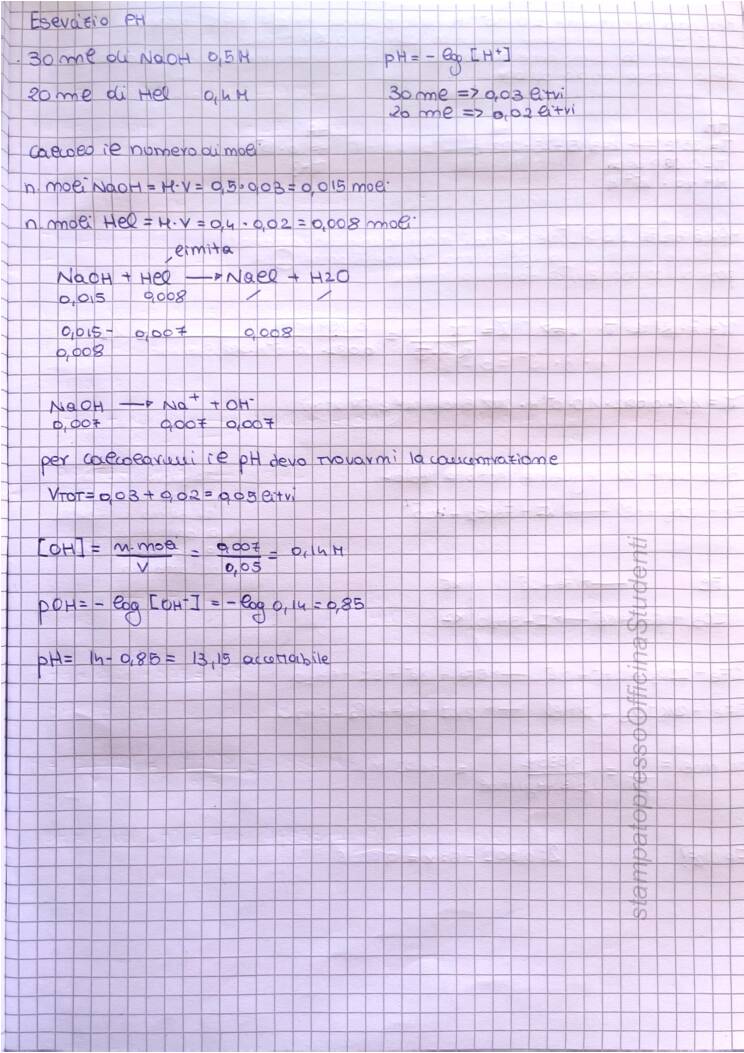 Esercizio PH
30 ml di NaOH 0,5M
pH = - log [H+]
20 ml di Hcl 0,4M
30 ml => 0,03 litri
20 ml => 0,02 litri
calcolo il numero di moli
n. moli NaOH = M·V = 0,5·0,03 = 0,015 moli
n. moli Hcl = M·V = 0,4·0,02 = 0,008 moli
limita
NaOH + Hcl → Nacl + H2O
0,015 0,008 / /
0,015- 0,007 0,008
0,008
NaOH → Na+ + OH-
0,007 0,007 0,007
per calcolarmi il pH devo trovarmi la concentrazione
VTOT = 0,03 + 0,02 = 0,05 litri
[OH] = n. moli / V = 0,007 / 0,05 = 0,14 M
pOH = - log [OH-] = - log 0,14 = 0,85
pH = 14 - 0,85 = 13,15 accettabile
stampatopressoOfficinaStudenti